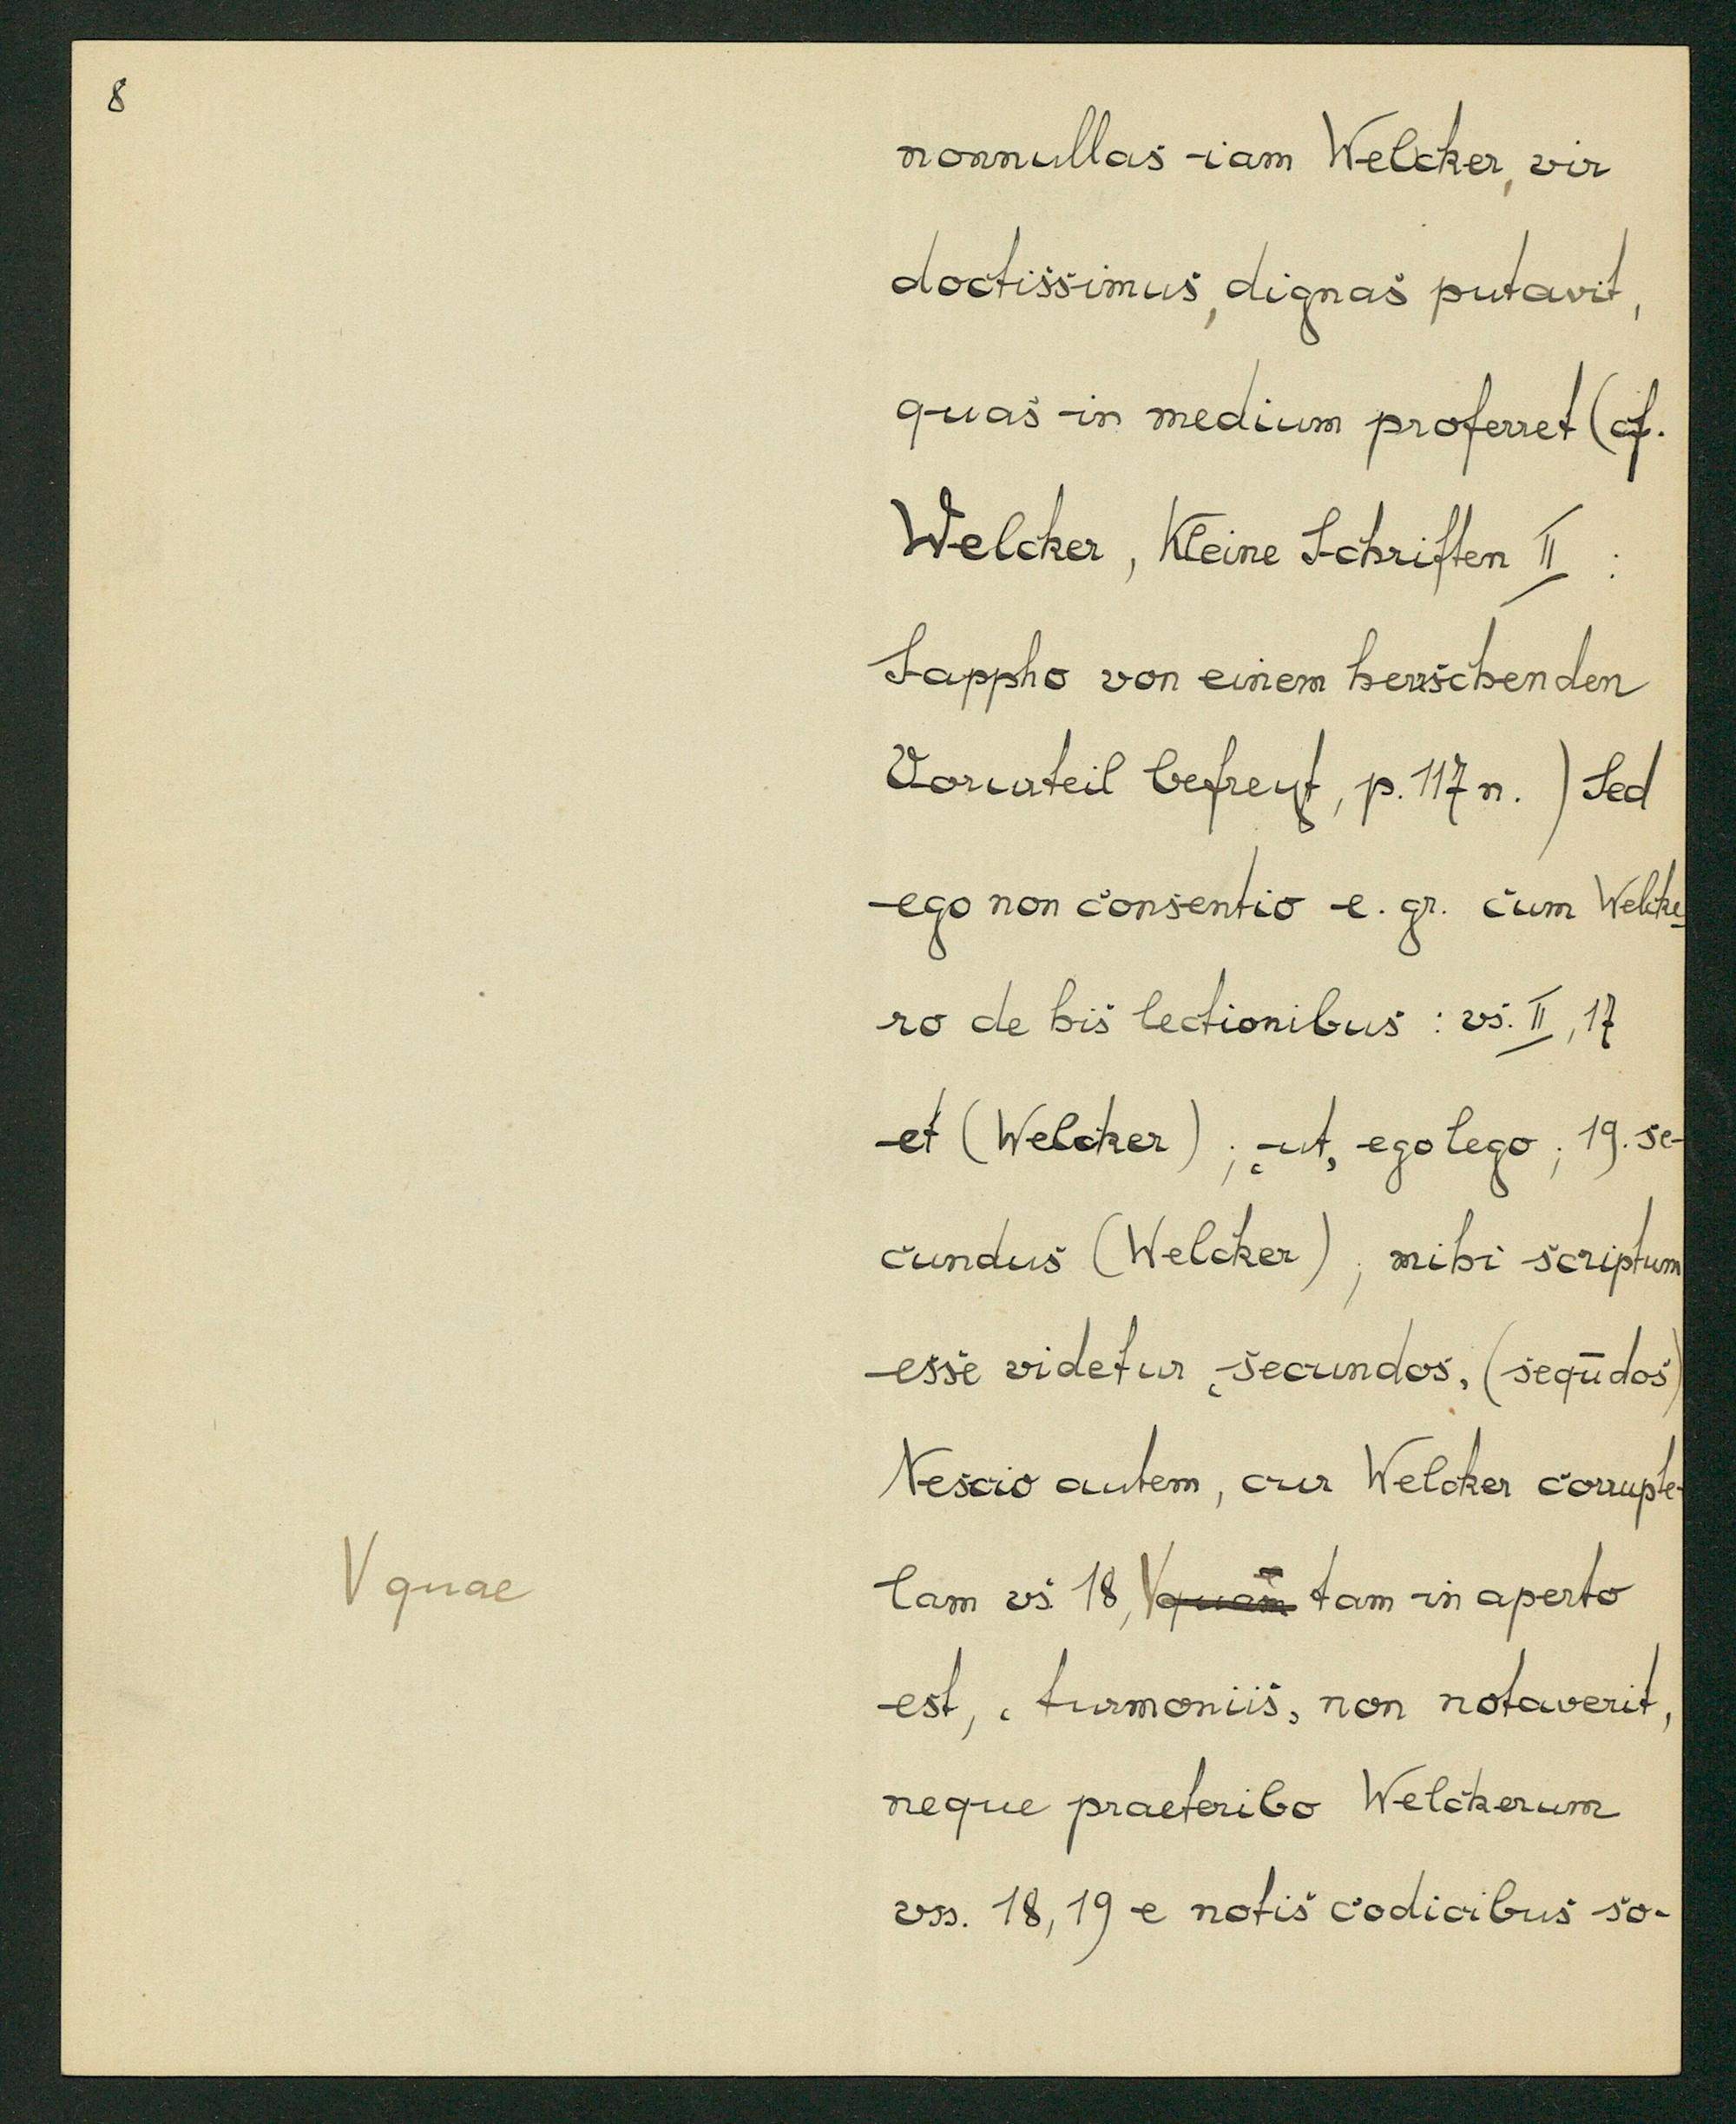 8
nonnullas iam Welcker, vir
doctissimus, dignas putavit,
quas in medium proferret (cf.
Welcker, Kleine Schriften II :
Sappho von einem herrschenden
Vorurteil befreyt, p. 117 n. ) Sed
ego non consentio e. gr. cum Welcke-
ro de his lectionibus : vs. II, 17
et (Welcker) ; ‘ut’ ego lego ; 19. se-
cundus (Welcker) ; mihi scriptum
esse videtur ‘secundos’ (seqūdos)
Nescio autem, cur Welcker corrupte-
lam vs. 18, V quam tam in aperto
V quae
est, ‘turmoniis’ non notaverit,
neque praeteribo Welckerum
vss. 18, 19 e notis codicibus so-